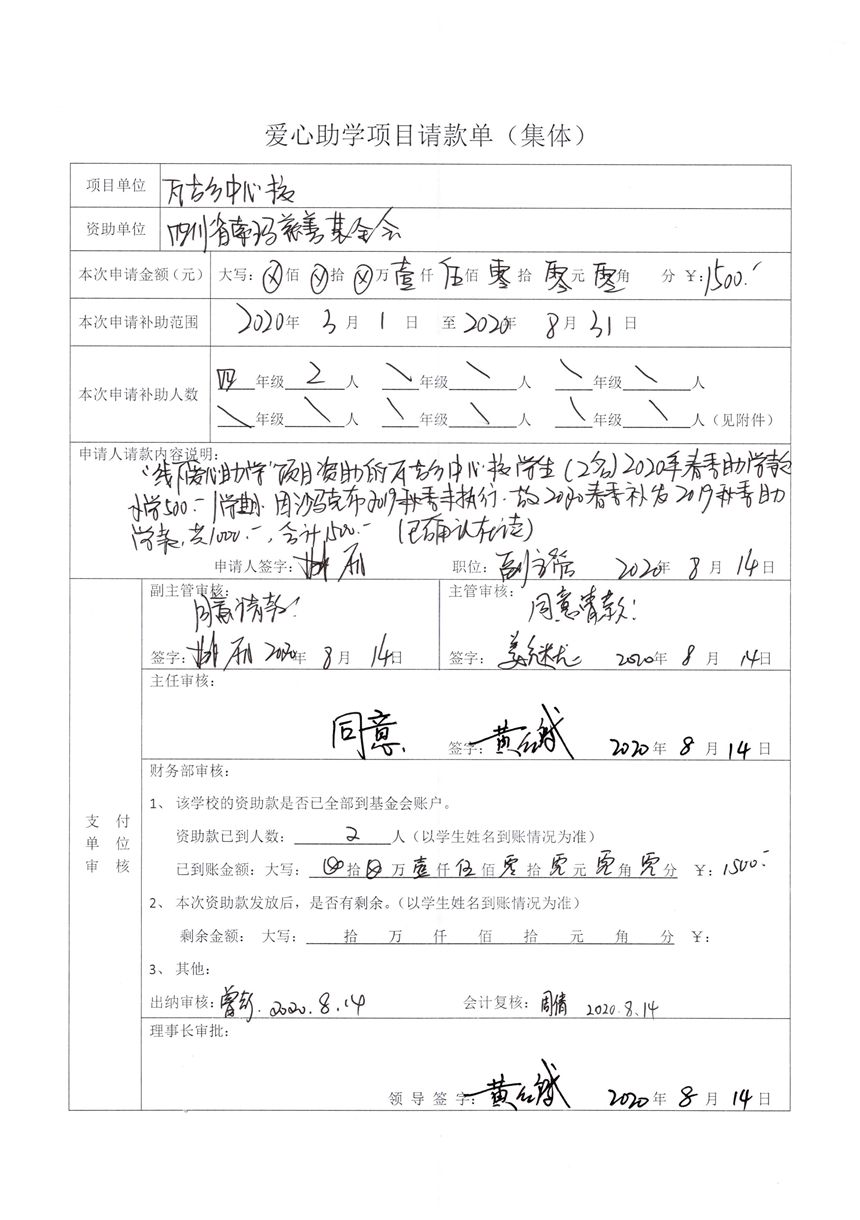 爱心助学项目请款单（集体）
项目单位 瓦吉乡中心校
资助单位 四川省索玛慈善基金会
本次申请金额（元） 大写：ⓧ佰 ⓧ拾 ⓧ万 壹仟 伍佰 零拾 零元 零角 分 ¥：1500.-
本次申请补助范围 2020年 3月 1日 至 2020年 8月 31日
本次申请补助人数 四年级 2人 \年级 \人 \年级 \人
\年级 \人 \年级 \人 \年级 \人（见附件）
申请人请款内容说明：
"线下爱心助学"项目资助的瓦吉乡中心校学生（2名）2020年春季助学款
小学500.-/学期. 因沙马克布2019秋季未执行. 故2020春季补发2019秋季助
学款，共1000.-，合计1500.- （已确认在读）
申请人签字： 职位：副主管 2020年 8月 14日
支付单位审核
副主管审核： 同意请款！
签字： 2020年 8月 14日
主管审核： 同意请款！
签字： 2020年 8月 14日
主任审核：
同意. 签字： 2020年 8月 14日
财务部审核：
1、 该学校的资助款是否已全部到基金会账户。
资助款已到人数： 2 人（以学生姓名到账情况为准）
已到账金额：大写： ⓧ拾 ⓧ万 壹仟 伍佰 零拾 零元 零角 零分 ¥：1500.-
2、 本次资助款发放后，是否有剩余。（以学生姓名到账情况为准）
剩余金额： 大写： 拾 万 仟 佰 拾 元 角 分 ¥：
3、 其他：
出纳审核： 2020.8.14 会计复核：周倩 2020.8.14
理事长审批：
领导签字： 2020年 8月 14日